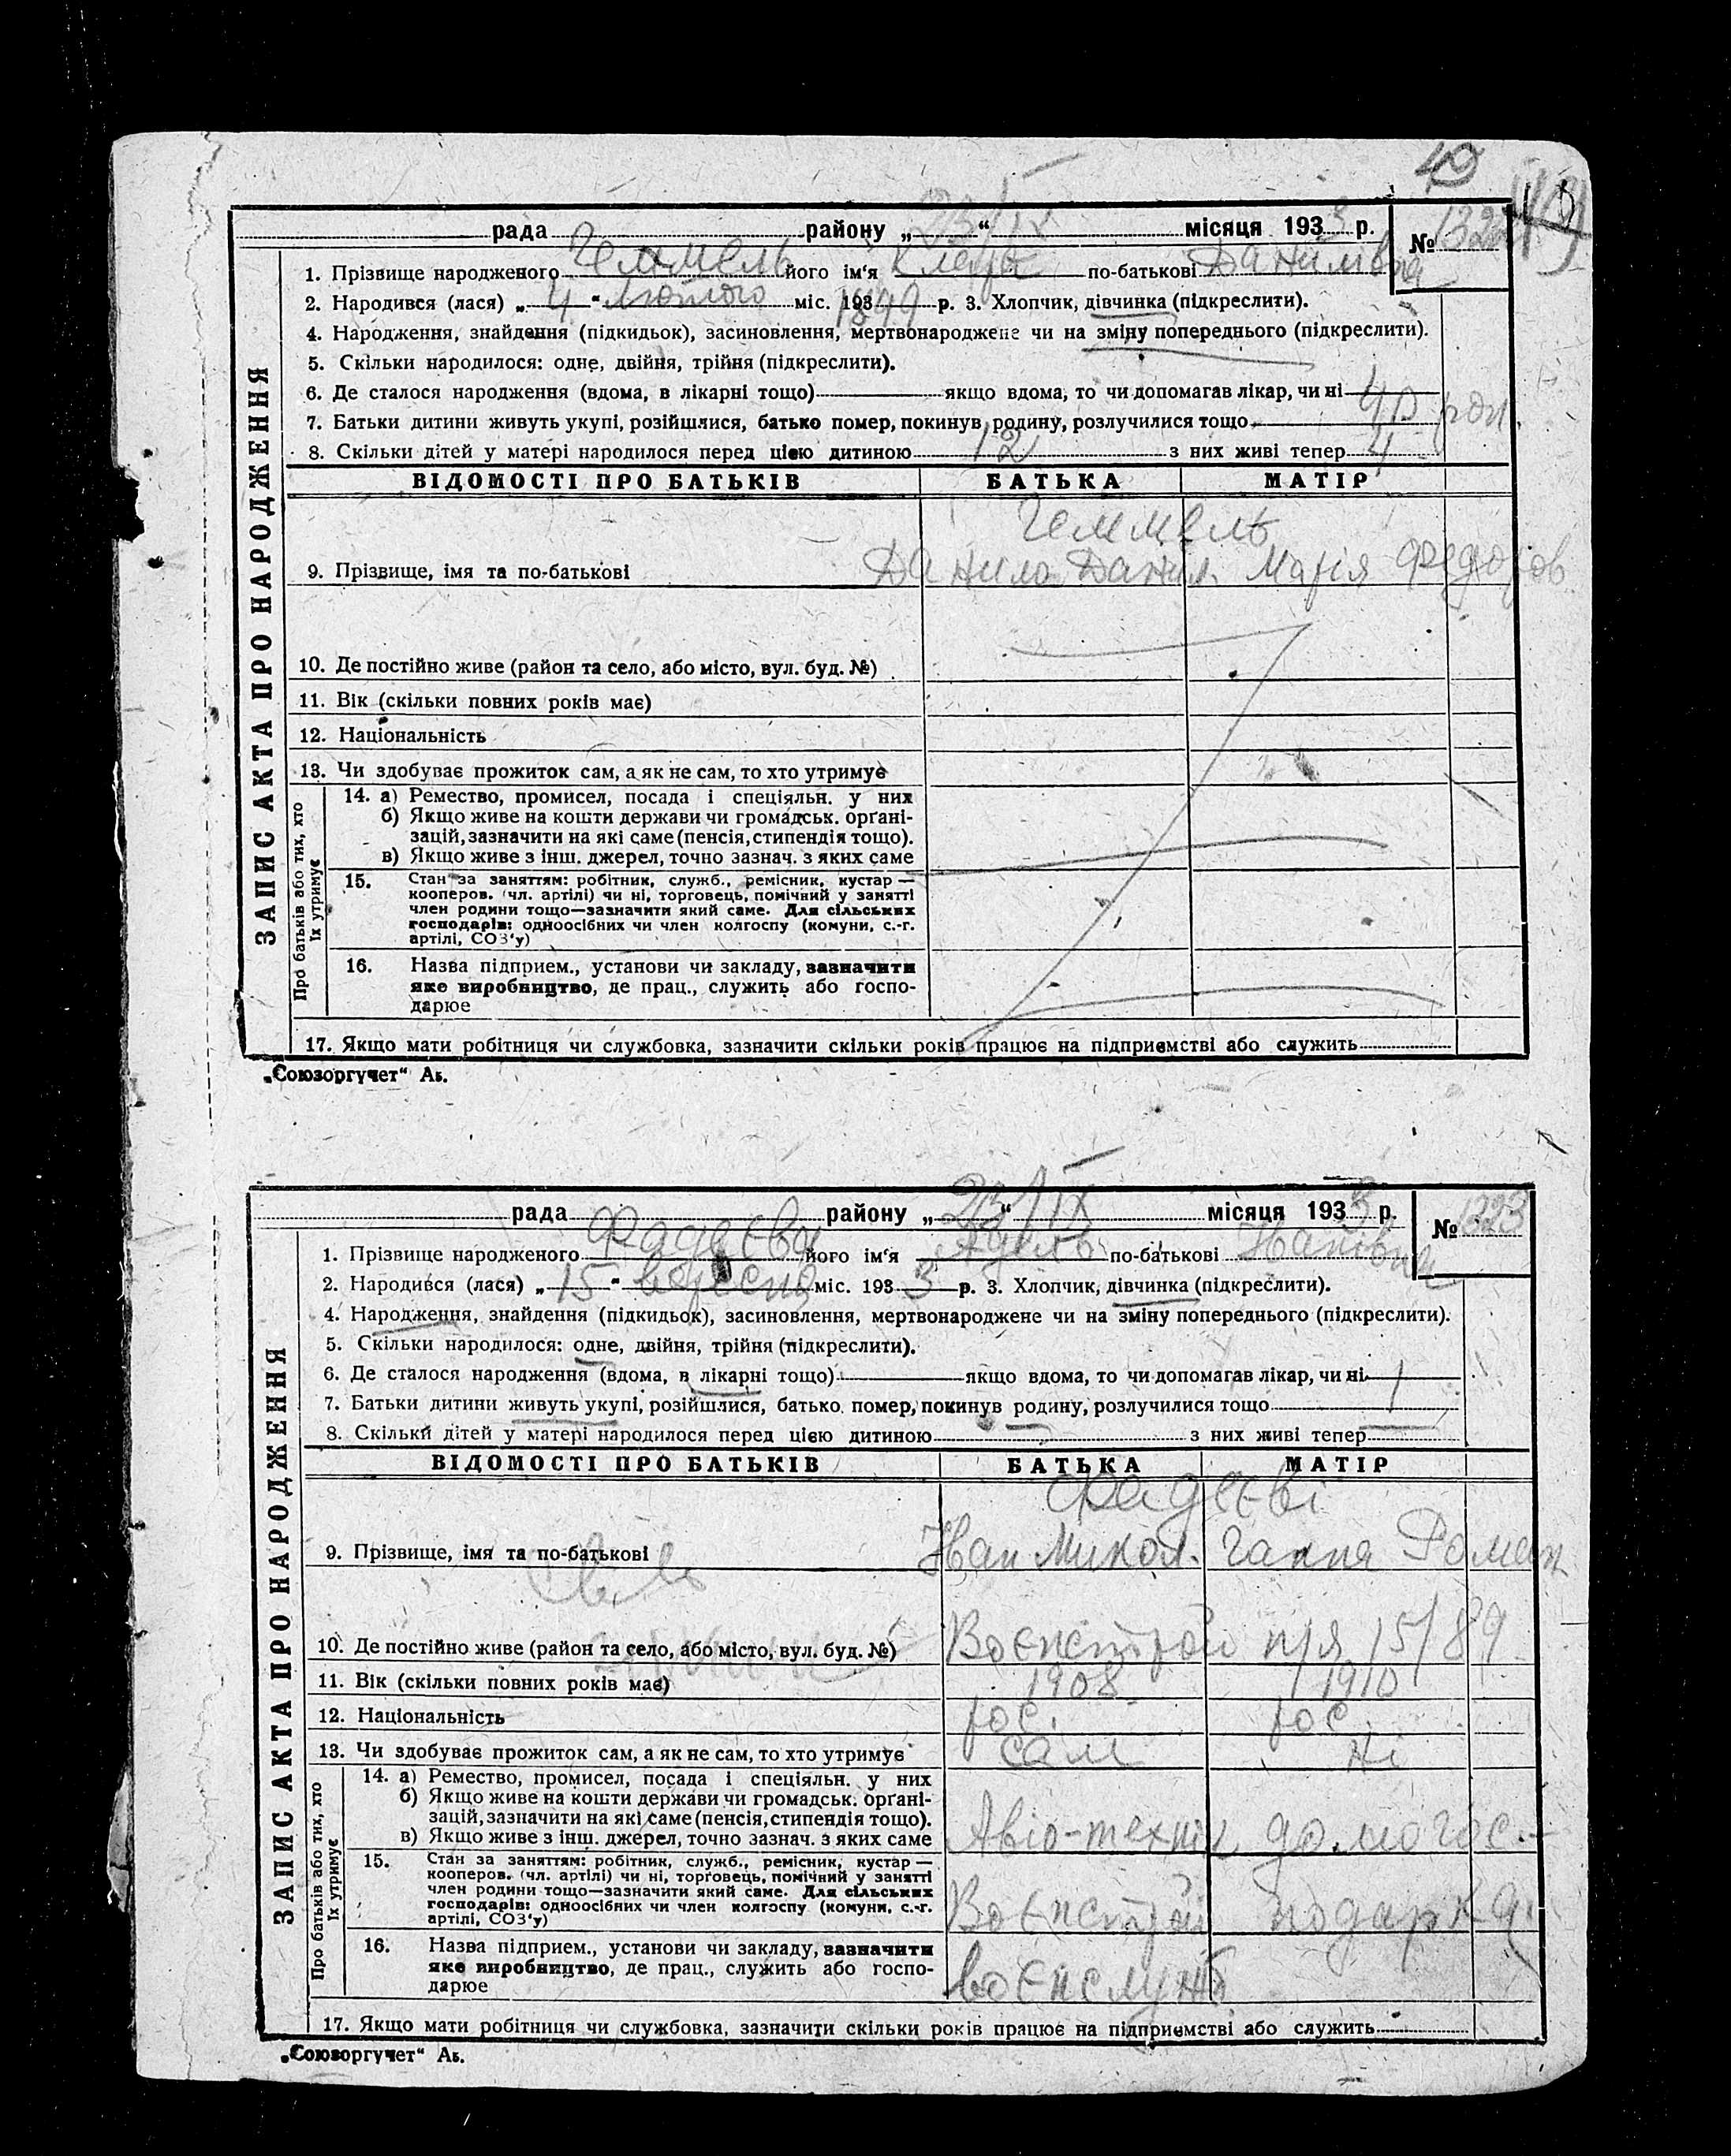 40
рада района „ 23/IX “ місяця 1933 р. № 1322
1. Прізвище народженого Геммель його ім'я Клара по-батькові Данилівна
2. Народився (лася) „ 4 “ Лютого міс. 193 1899 р. 3. Хлопчик, дівчинка (підкреслити).
4. Народження, знайдення (підкидьок), засиновлення, мертвонароджене чи на зміну попереднього (підкреслити).
5. Скільки народилося: одне, двійня, трійня (підкреслити).
6. Де сталося народження (вдома, в лікарні тощо) якщо вдома, то чи допомагав лікар, чи ні
7. Батьки дитини живуть укупі, розійшлися, батько помер, покинув родину, розлучилися тощо
8. Скільки дітей у матері народилося перед цією дитиною 12 з них живі тепер 4
ЗАПИС АКТА ПРО НАРОДЖЕННЯ
ВІДОМОСТІ ПРО БАТЬКІВ БАТЬКА МАТІР
Геммель
9. Прізвище, імя та по-батькові Данило Данил. Марія Федоров
10. Де постійно живе (район та село, або місто, вул. буд. №)
11. Вік (скільки повних років має)
12. Національність
13. Чи здобуває прожиток сам, а як не сам, то хто утримує
Про батьків або тих, хто їх утримує
14. а) Ремество, промисел, посада і спеціяльн. у них
б) Якщо живе на кошти держави чи громадськ. орґані-
зацій, зазначити на які саме (пенсія, стипендія тощо).
в) Якщо живе з інш. джерел, точно зазнач. з яких саме
15. Стан за заняттям: робітник, служб., ремісник, кустар —
кооперов. (чл. артілі) чи ні, торговець, помічний у занятті
член родини тощо—зазначити який саме. Для сільських
господарів: одноосібних чи член колгоспу (комуни, с.-г.
артілі, СОЗ'у)
16. Назва підприєм., установи чи закладу, зазначити
яке виробництво, де прац., служить або госпо-
дарює
17. Якщо мати робітниця чи службовка, зазначити скільки років працює на підприємстві або служить
„Союзоргучет“ Аь.
рада району „ 23/IX “ місяця 1933 р. № 1323
1. Прізвище народженого Фадєєва його ім'я Адель по-батькові Іванівна
2. Народився (лася) „ 15 “ вересня міс. 1933 р. 3. Хлопчик, дівчинка (підкреслити).
4. Народження, знайдення (підкидьок), засиновлення, мертвонароджене чи на зміну попереднього (підкреслити).
5. Скільки народилося: одне, двійня, трійня (підкреслити).
6. Де сталося народження (вдома, в лікарні тощо) якщо вдома, то чи допомагав лікар, чи ні
7. Батьки дитини живуть укупі, розійшлися, батько помер, покинув родину, розлучилися тощо 1
8. Скільки дітей у матері народилося перед цією дитиною — з них живі тепер —
ЗАПИС АКТА ПРО НАРОДЖЕННЯ
ВІДОМОСТІ ПРО БАТЬКІВ БАТЬКА МАТІР
Фадєєві
9. Прізвище, імя та по-батькові Іван Микол. Ганна Роман
10. Де постійно живе (район та село, або місто, вул. буд. №) Воєнстрой п/я 15/89
11. Вік (скільки повних років має) 1908 1910
12. Національність рос. рос.
13. Чи здобуває прожиток сам, а як не сам, то хто утримує сам ні
Про батьків або тих, хто їх утримує
14. а) Ремество, промисел, посада і спеціяльн. у них
б) Якщо живе на кошти держави чи громадськ. орґані-
зацій, зазначити на які саме (пенсія, стипендія тощо).
в) Якщо живе з інш. джерел, точно зазнач. з яких саме Авіо-технік домогос.-
15. Стан за заняттям: робітник, служб., ремісник, кустар —
кооперов. (чл. артілі) чи ні, торговець, помічний у занятті
член родини тощо—зазначити який саме. Для сільських
господарів: одноосібних чи член колгоспу (комуни, с.-г.
артілі, СОЗ'у) Воєнстрой подарка
16. Назва підприєм., установи чи закладу, зазначити
яке виробництво, де прац., служить або госпо-
дарює воєнслужб
17. Якщо мати робітниця чи службовка, зазначити скільки років працює на підприємстві або служить
„Союзоргучет“ Аь.